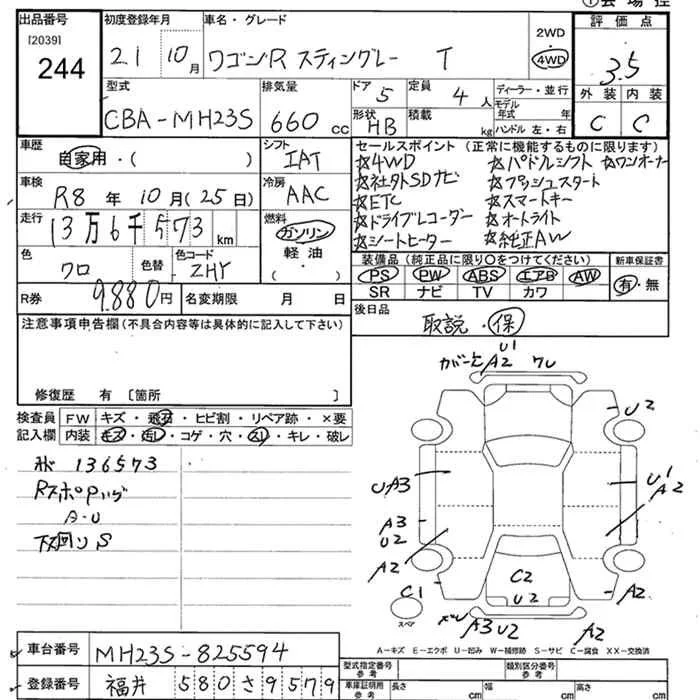 ①会場控
出品番号
[2039]
244
初度登録年月
21 10月
車名・グレード
ワゴンR スティングレー T
2WD
4WD
評価点
3.5
型式
CBA-MH23S
排気量
660 cc
ドア
5
定員
4人
形状
HB
積載
kg
ディーラー・並行
モデル年式 年
ハンドル 左・右
外装 内装
C C
車歴
自家用・( )
シフト
IAT
車検
R8年10月(25日)
冷房
AAC
走行
13万6千573km
燃料
ガソリン
軽油
( )
色
クロ
色替
色コード
ZHY
R券
9.880円
名変期限 月 日
セールスポイント (正常に機能するものに限ります)
☆4WD ☆パドルシフト ☆ワンオーナー
☆社外SDナビ ☆プッシュスタート
☆ETC ☆スマートキー
☆ドライブレコーダー ☆オートライト
☆シートヒーター ☆純正AW
装備品 (純正品に限り○をつけてください)
PS PW ABS エアB AW
SR ナビ TV カワ
新車保証書
有・無
後日品
取説・保
注意事項申告欄(不具合内容等は具体的に記入して下さい)
修復歴 有 〔箇所 〕
検査員記入欄
FW キズ・飛石・ヒビ割・リペア跡・×要
内装 キズ・汚レ・コゲ・穴・スレ・キレ・破レ
136573
A・U
下回りS
U1
A2
U2
UA3
U1
A2
A3
U2
A2
C1
C2
U2
A2
スペア
A3U2
A2
A-キズ E-エクボ U-凹み W-補修跡 S-サビ C-腐食 XX-交換済
車台番号
MH23S-825594
登録番号
福井 580 さ 9579
型式指定番号
参考
類別区分番号
参考
車庫証明用
参考
長さ cm
幅 cm
高さ cm